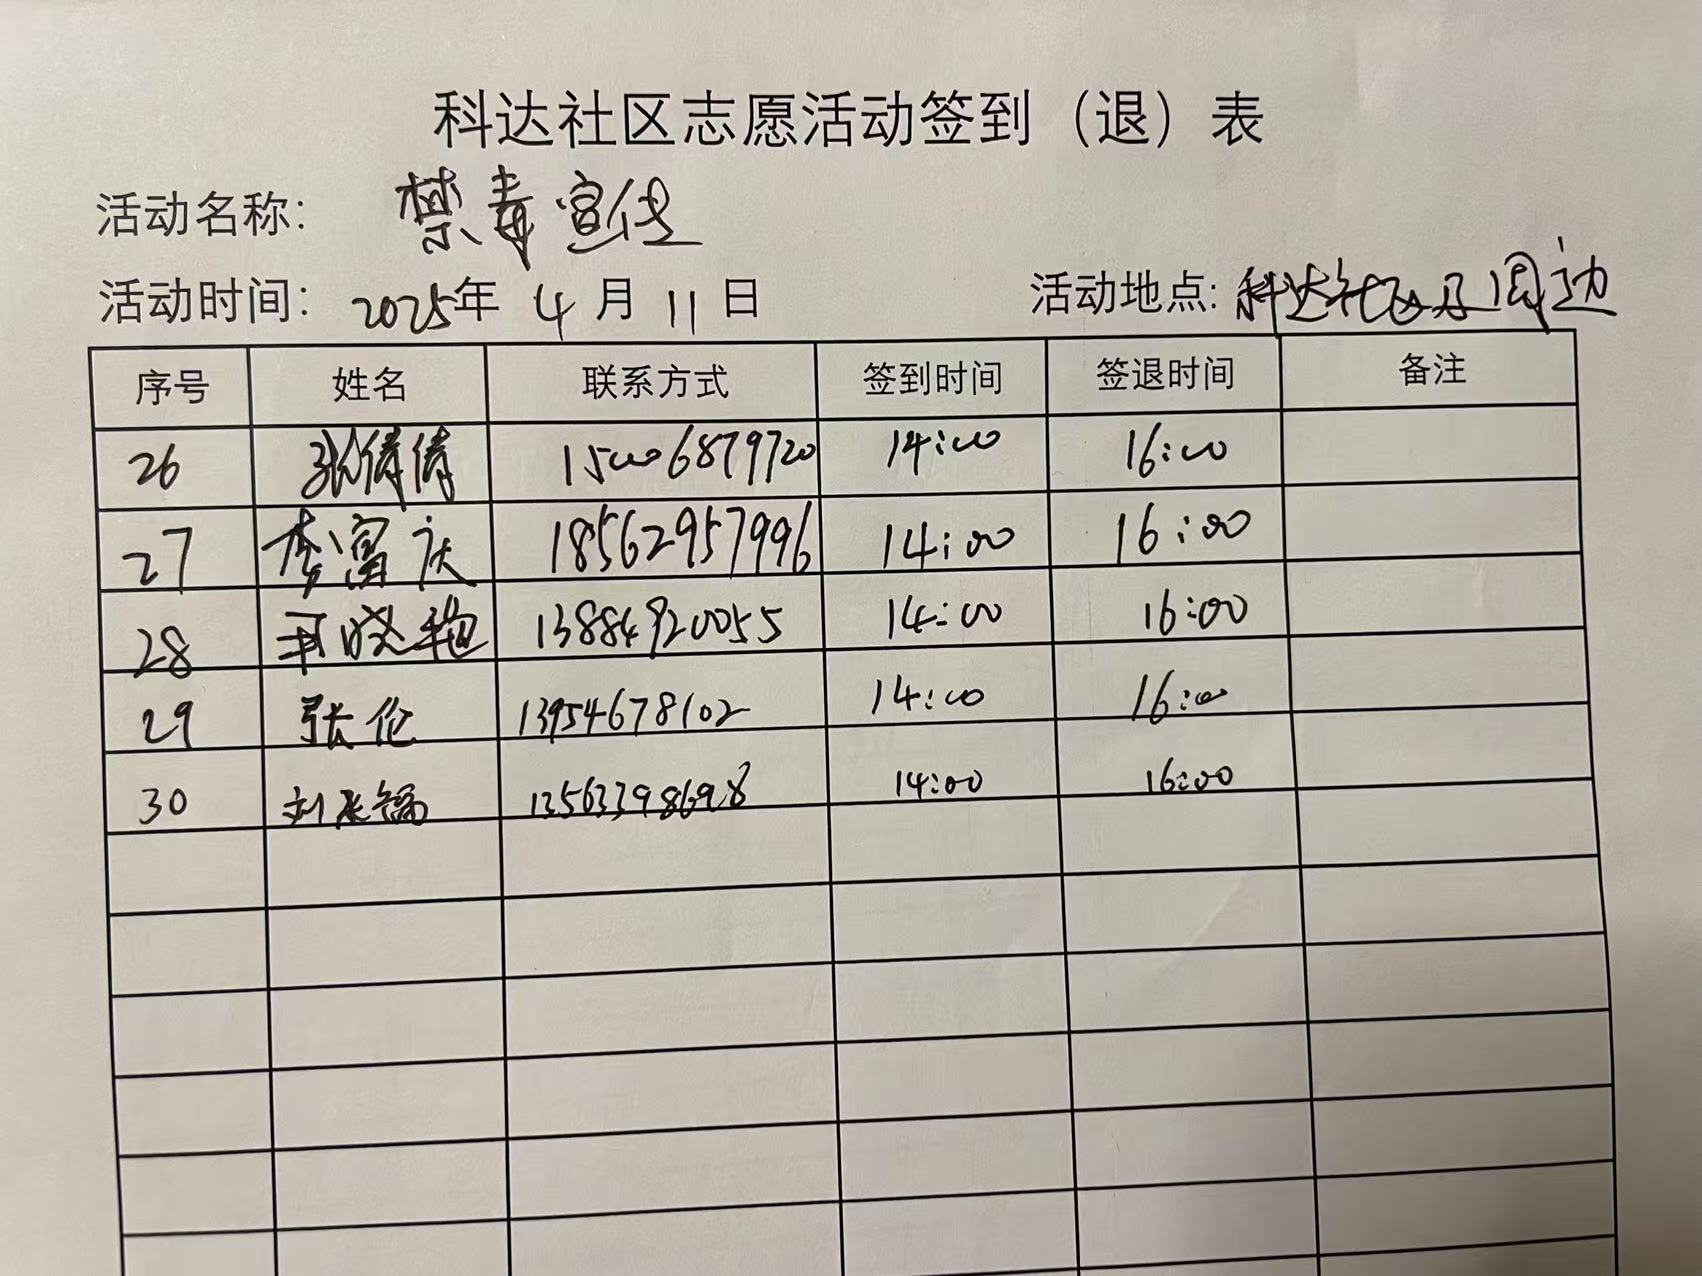 科达社区志愿活动签到（退）表
活动名称： 禁毒宣传
活动时间： 2025年 4月 11日 活动地点: 科达社区及周边
序号 姓名 联系方式 签到时间 签退时间 备注
26 张倩倩 15006879720 14:00 16:00
27 李富庆 18562957996 14:00 16:00
28 晓艳 13884920055 14:00 16:00
29 张伦 13954678102 14:00 16:00
30 刘 13563398698 14:00 16:00